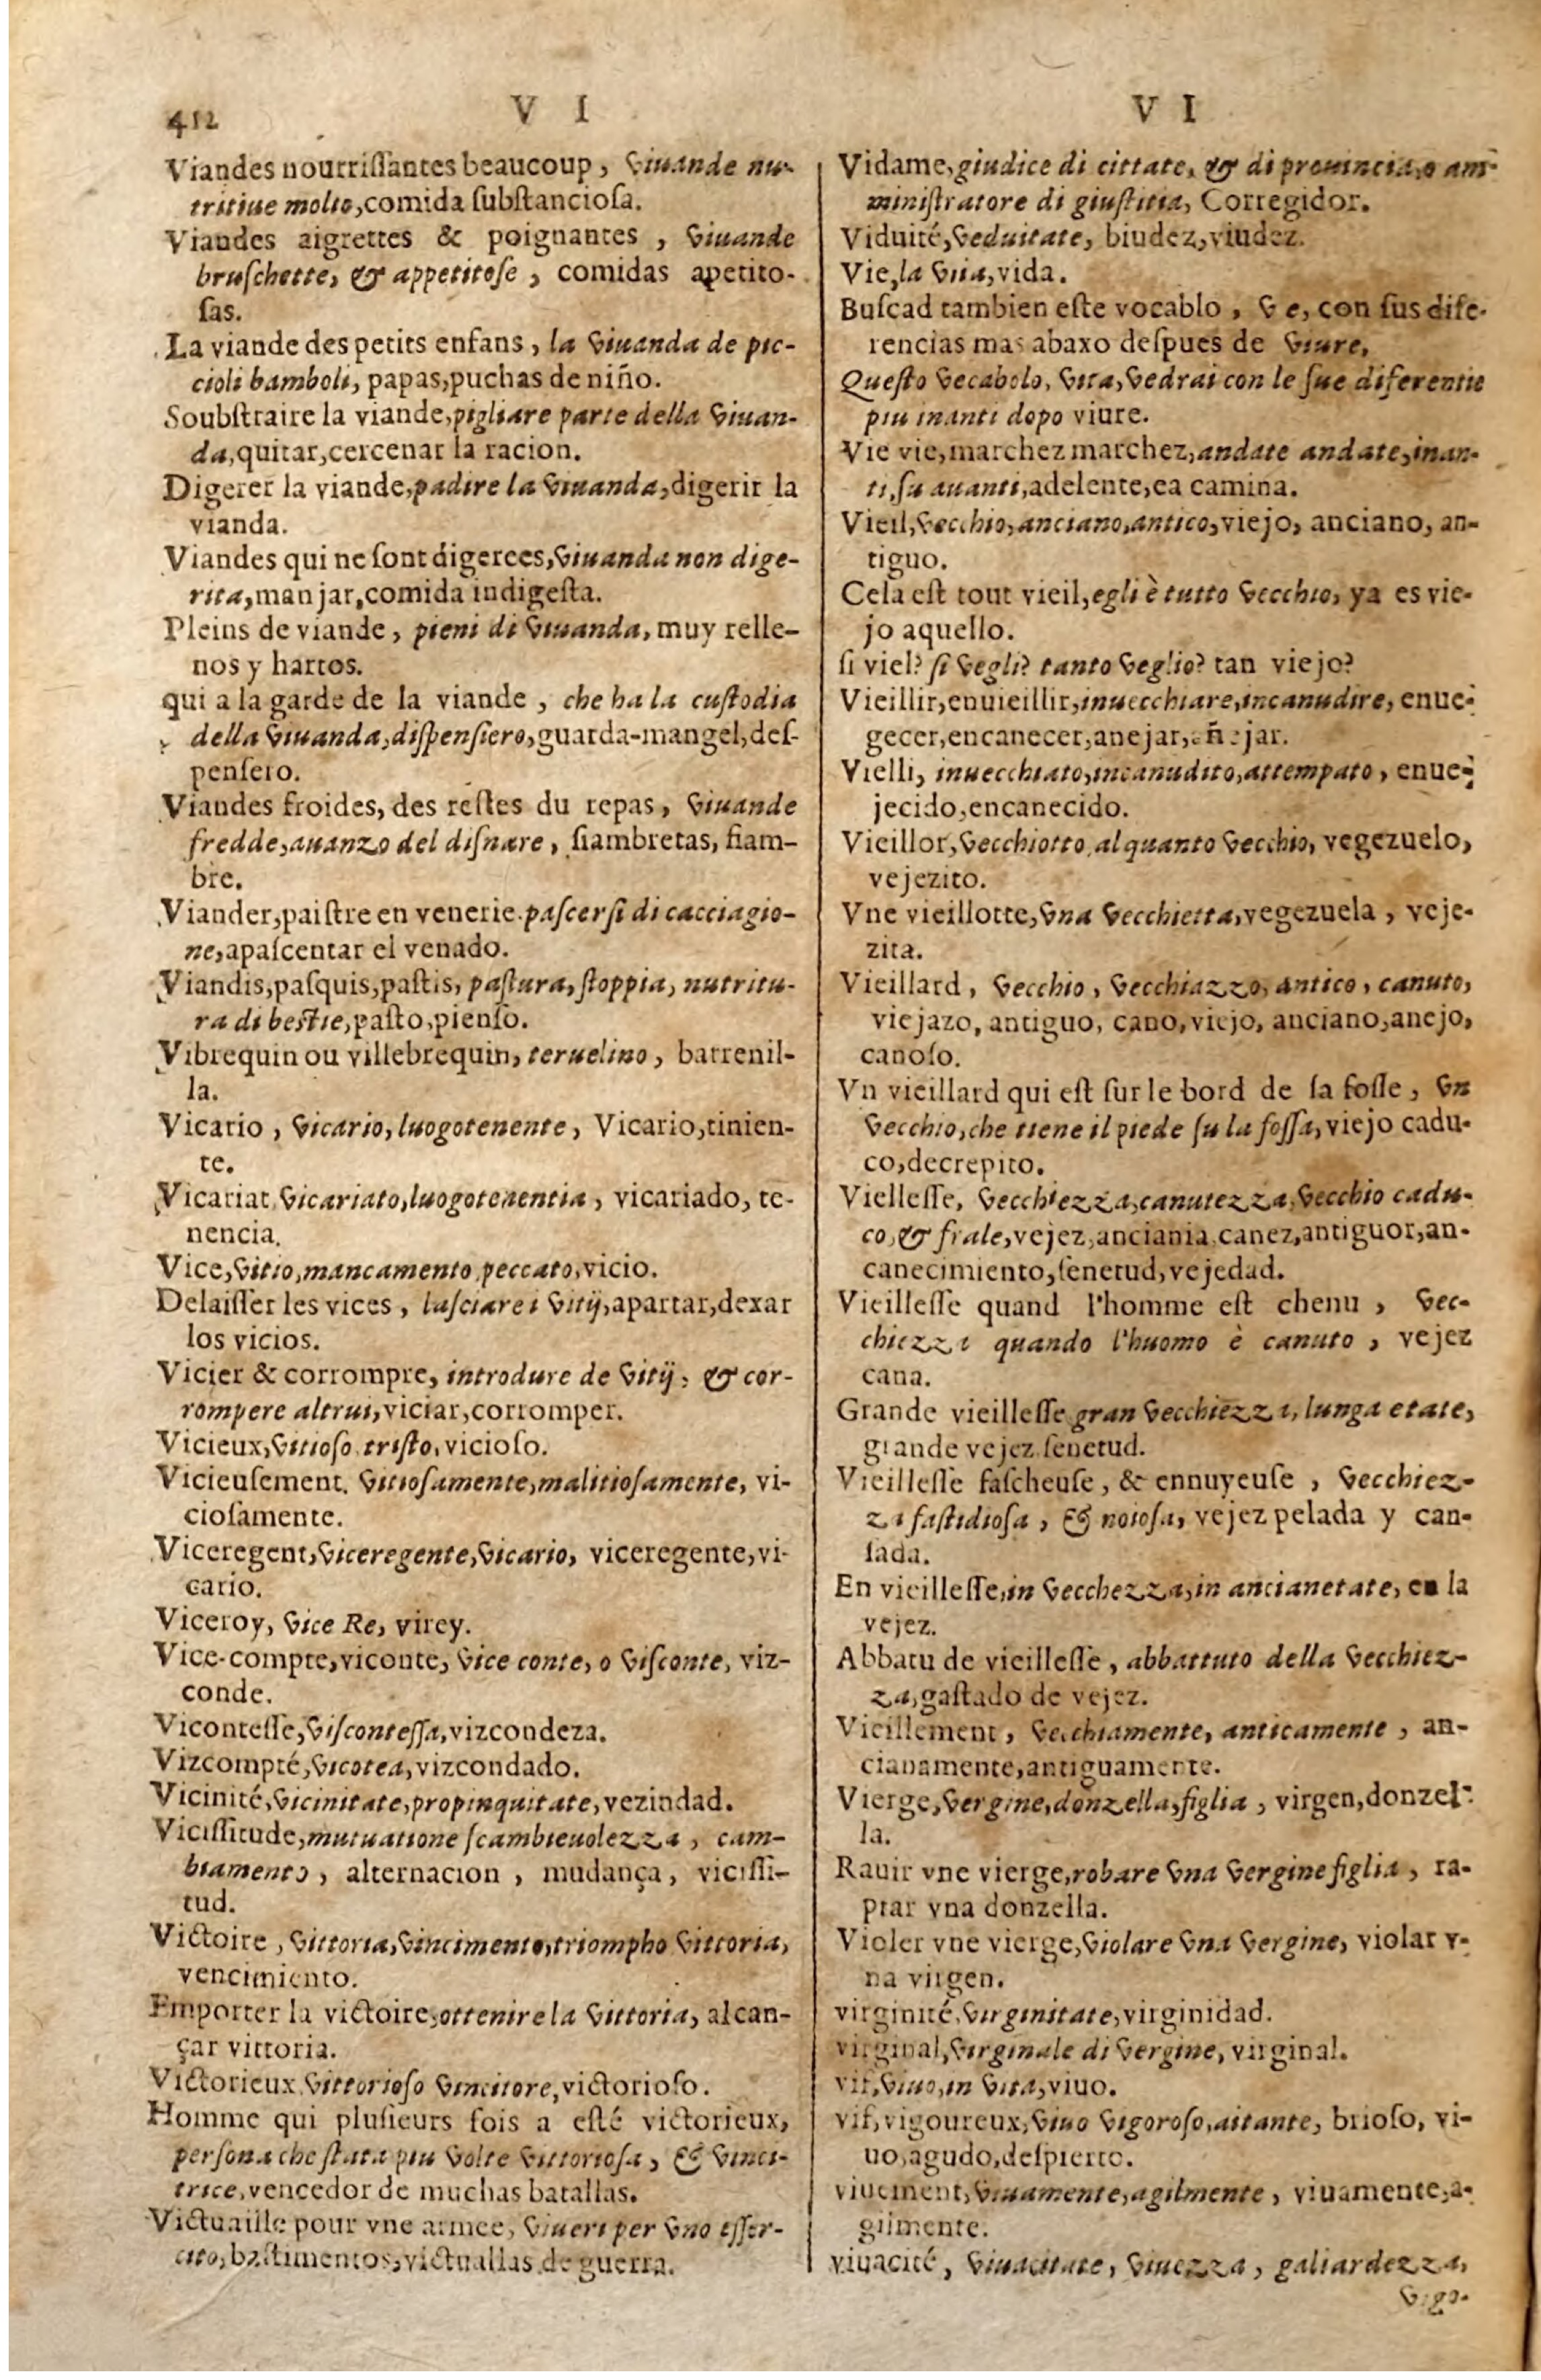 412
V I
Viandes nourriſſantes beaucoup, viuande nu-
tritiue molto, comida ſubſtancioſa.
Viandes aigrettes & poignantes, viuande
bruſchette, & appetitoſe, comidas apetito-
ſas.
La viande des petits enfans, la viuanda de pic-
cioli bamboli, papas, puchas de niño.
Soubſtraire la viande, pigliare parte della viuan-
da, quitar, cercenar la racion.
Digerer la viande, padire la viuanda, digerir la
vianda.
Viandes qui ne ſont digerees, viuanda non dige-
rita, manjar, comida indigeſta.
Pleins de viande, pieni di viuanda, muy relle-
nos y hartos.
qui a la garde de la viande, che ha la cuſtodia
della viuanda, diſpenſiero, guarda-mangel, deſ-
penſero.
Viandes froides, des reſtes du repas, viuande
fredde, auanzo del diſnare, fiambretas, fiam-
bre.
Viander, paiſtre en venerie. paſcerſi di cacciagio-
ne, apaſcentar el venado.
Viandis, paſquis, paſtis, paſtura, ſtoppia, nutritu-
ra di beſtie, paſto, pienſo.
Vibrequin ou villebrequin, teruelino, barrenil-
la.
Vicario, vicario, luogotenente, Vicario, tinien-
te.
Vicariat, vicariato, luogotenentia, vicariado, te-
nencia.
Vice, vitio, mancamento, peccato, vicio.
Delaiſſer les vices, laſciare i vitij, apartar, dexar
los vicios.
Vicier & corrompre, introdure de vitij, & cor-
rompere altrui, viciar, corromper.
Vicieux, vitioſo, triſto, vicioſo.
Vicieuſement, vitioſamente, malitioſamente, vi-
cioſamente.
Viceregent, viceregente, vicario, viceregente, vi-
cario.
Viceroy, vice Re, virey.
Vice-compte, viconte, vice conte, o viſconte, viz-
conde.
Viconteſſe, viſconteſſa, vizcondeza.
Vizcompté, vicotea, vizcondado.
Vicinité, vicinitate, propinquitate, vezindad.
Viciſſitude, mutuatione ſcambieuolezza, cam-
biamento, alternacion, mudança, viciſſi-
tud.
Victoire, vittoria, vincimento, triompho vittoria,
vencimiento.
Emporter la victoire, ottenire la vittoria, alcan-
çar vittoria.
Victorieux, vittorioſo vincitore, victorioſo.
Homme qui pluſieurs fois a eſté victorieux,
perſona che ſtata piu volte vittorioſa, & vinci-
trice, vencedor de muchas batallas.
Victuaille pour vne armee, viueri per vno eſſer-
cito, baſtimentos, victuallas de guerra.
V I
Vidame, giudice di cittate, & di prouincia, o am-
miniſtratore di giuſtitia, Corregidor.
Viduité, veduitate, biudez, viudez.
Vie, la vita, vida.
Buſcad tambien eſte vocablo, v e, con ſus dife-
rencias mas abaxo deſpues de viure,
Queſto vecabolo, vita, vedrai con le ſue diferentie
piu inanti dopo viure.
Vie vie, marchez marchez, andate andate, inan-
ti, ſu auanti, adelente, ea camina.
Vieil, vecchio, anciano, antico, viejo, anciano, an-
tiguo.
Cela eſt tout vieil, egli è tutto vecchio, ya es vie-
jo aquello.
ſi viel? ſi vegli? tanto veglio? tan viejo?
Vieillir, enuieillir, inuecchiare, incanudire, enue-
gecer, encanecer, anejar, añejar.
Vielli, inuecchiato, incanudito, attempato, enue-
jecido, encanecido.
Vieillot, vecchiotto, alquanto vecchio, vegezuelo,
vejezito.
Vne vieillotte, vna vecchietta, vegezuela, veje-
zita.
Vieillard, vecchio, vecchiazzo, antico, canuto,
viejazo, antiguo, cano, viejo, anciano, anejo,
canoſo.
Vn vieillard qui eſt ſur le bord de ſa foſſe, vn
vecchio, che tiene il piede ſu la foſſa, viejo cadu-
co, decrepito.
Vielleſſe, vecchiezza, canutezza, vecchio cadu-
co, & frale, vejez, anciania, canez, antiguor, an-
canecimiento, ſenetud, vejedad.
Vieilleſſe quand l'homme eſt chenu, vec-
chiezza quando l'huomo è canuto, vejez
cana.
Grande vieilleſſe gran vecchiezza, lunga etate,
grande vejez, ſenetud.
Vieilleſſe faſcheuſe, & ennuyeuſe, vecchiez-
za faſtidioſa, & noioſa, vejez pelada y can-
ſada.
En vieilleſſe, in vecchezza, in ancianetate, en la
vejez.
Abbatu de vieilleſſe, abbattuto della vecchiez-
za, gaſtado de vejez.
Vieillement, vecchiamente, anticamente, an-
cianamente, antiguamente.
Vierge, vergine, donzella, figlia, virgen, donzel-
la.
Rauir vne vierge, robare vna vergine figlia, ra-
ptar vna donzella.
Violer vne vierge, violare vna vergine, violar v-
na virgen.
virginité, virginitate, virginidad.
virginal, virginale di vergine, virginal.
vif, viuo, in vita, viuo.
vif, vigoureux, viuo vigoroſo, aitante, brioſo, vi-
uo, agudo, deſpierto.
viuement, viuamente, agilmente, viuamente, a-
gilmente.
viuacité, viuacitate, viuezza, galiardezza,
vigo-